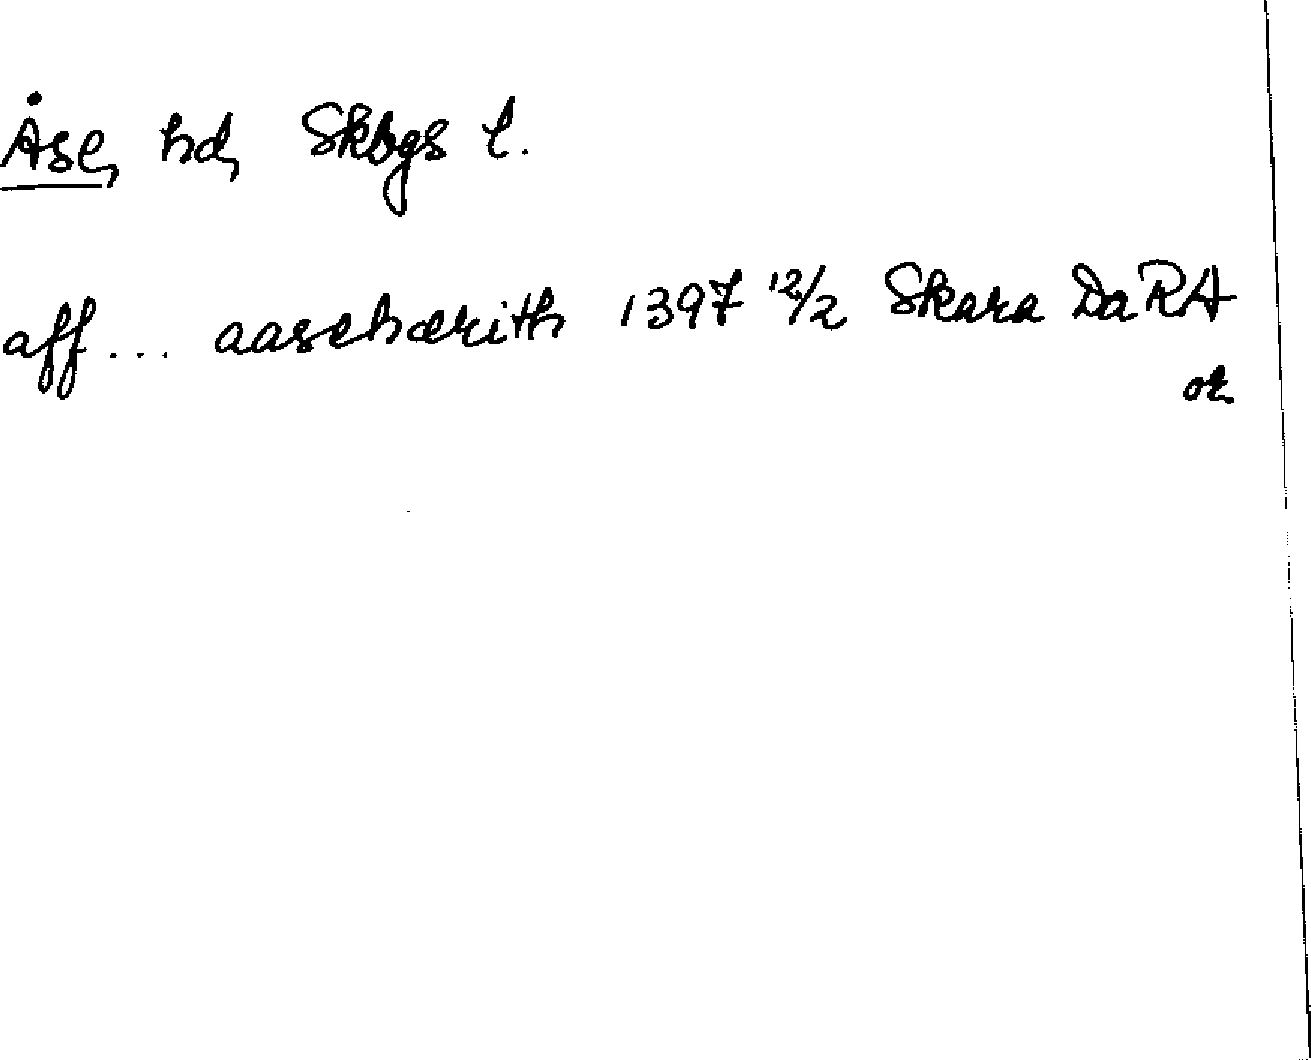 Åse, hd, Skbgs l.
aff... aaschærith 1397 12/2 Skara DaRA
or